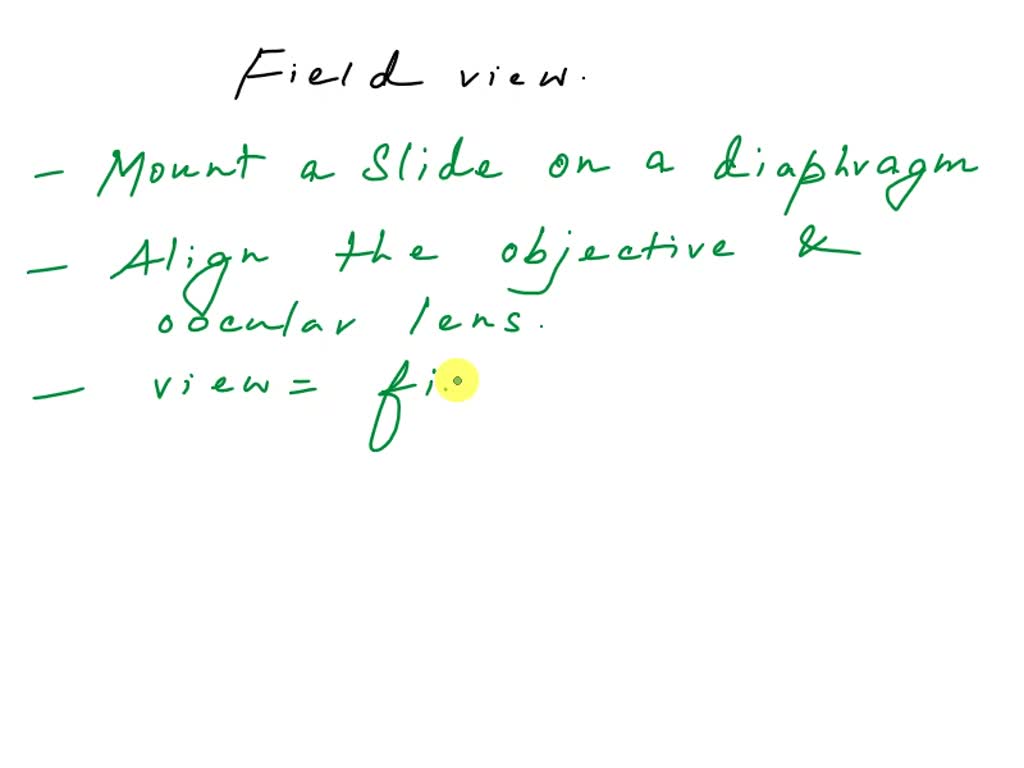 Field view.
- Mount a Slide on a diaphragm
- Align the objective &
oocular lens.
- view = fi